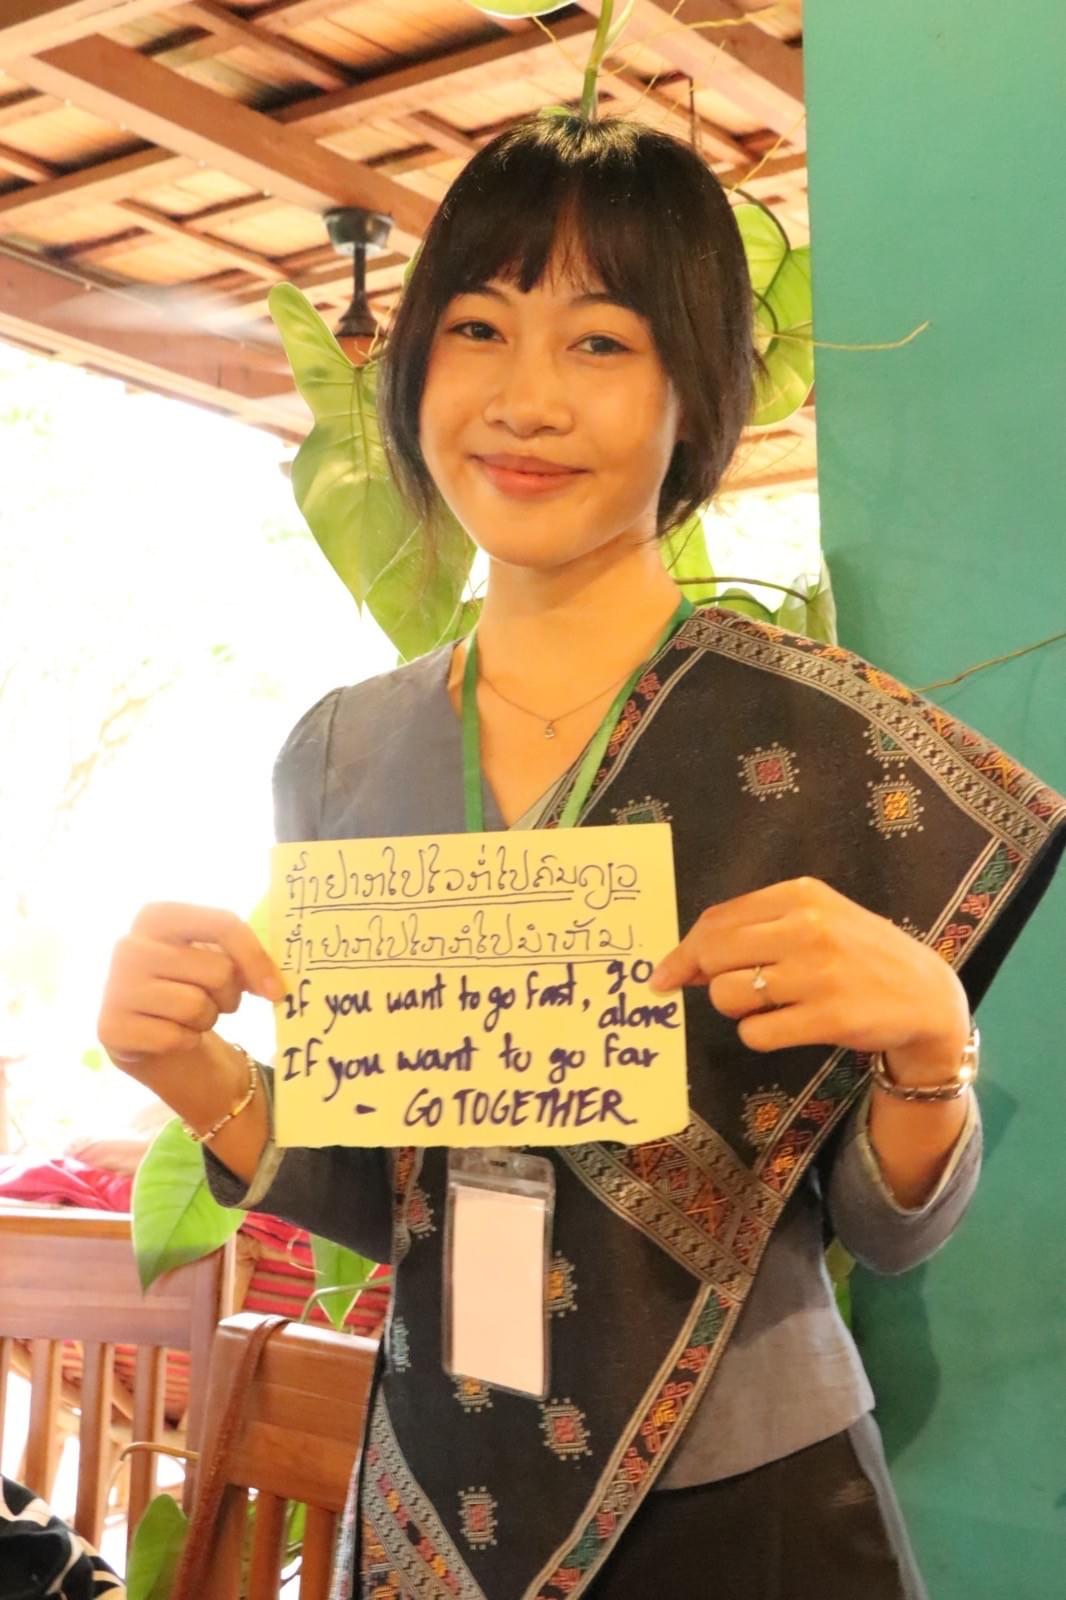 ຖ້າຢາກໄປໄວກໍ່ໄປຄົນດຽວ
ຖ້າຢາກໄປໄກກໍໄປນໍາກັນ.
If you want to go fast, go
alone
If you want to go far
- GO TOGETHER